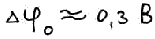 Δφ₀ ≈ 0,3 В